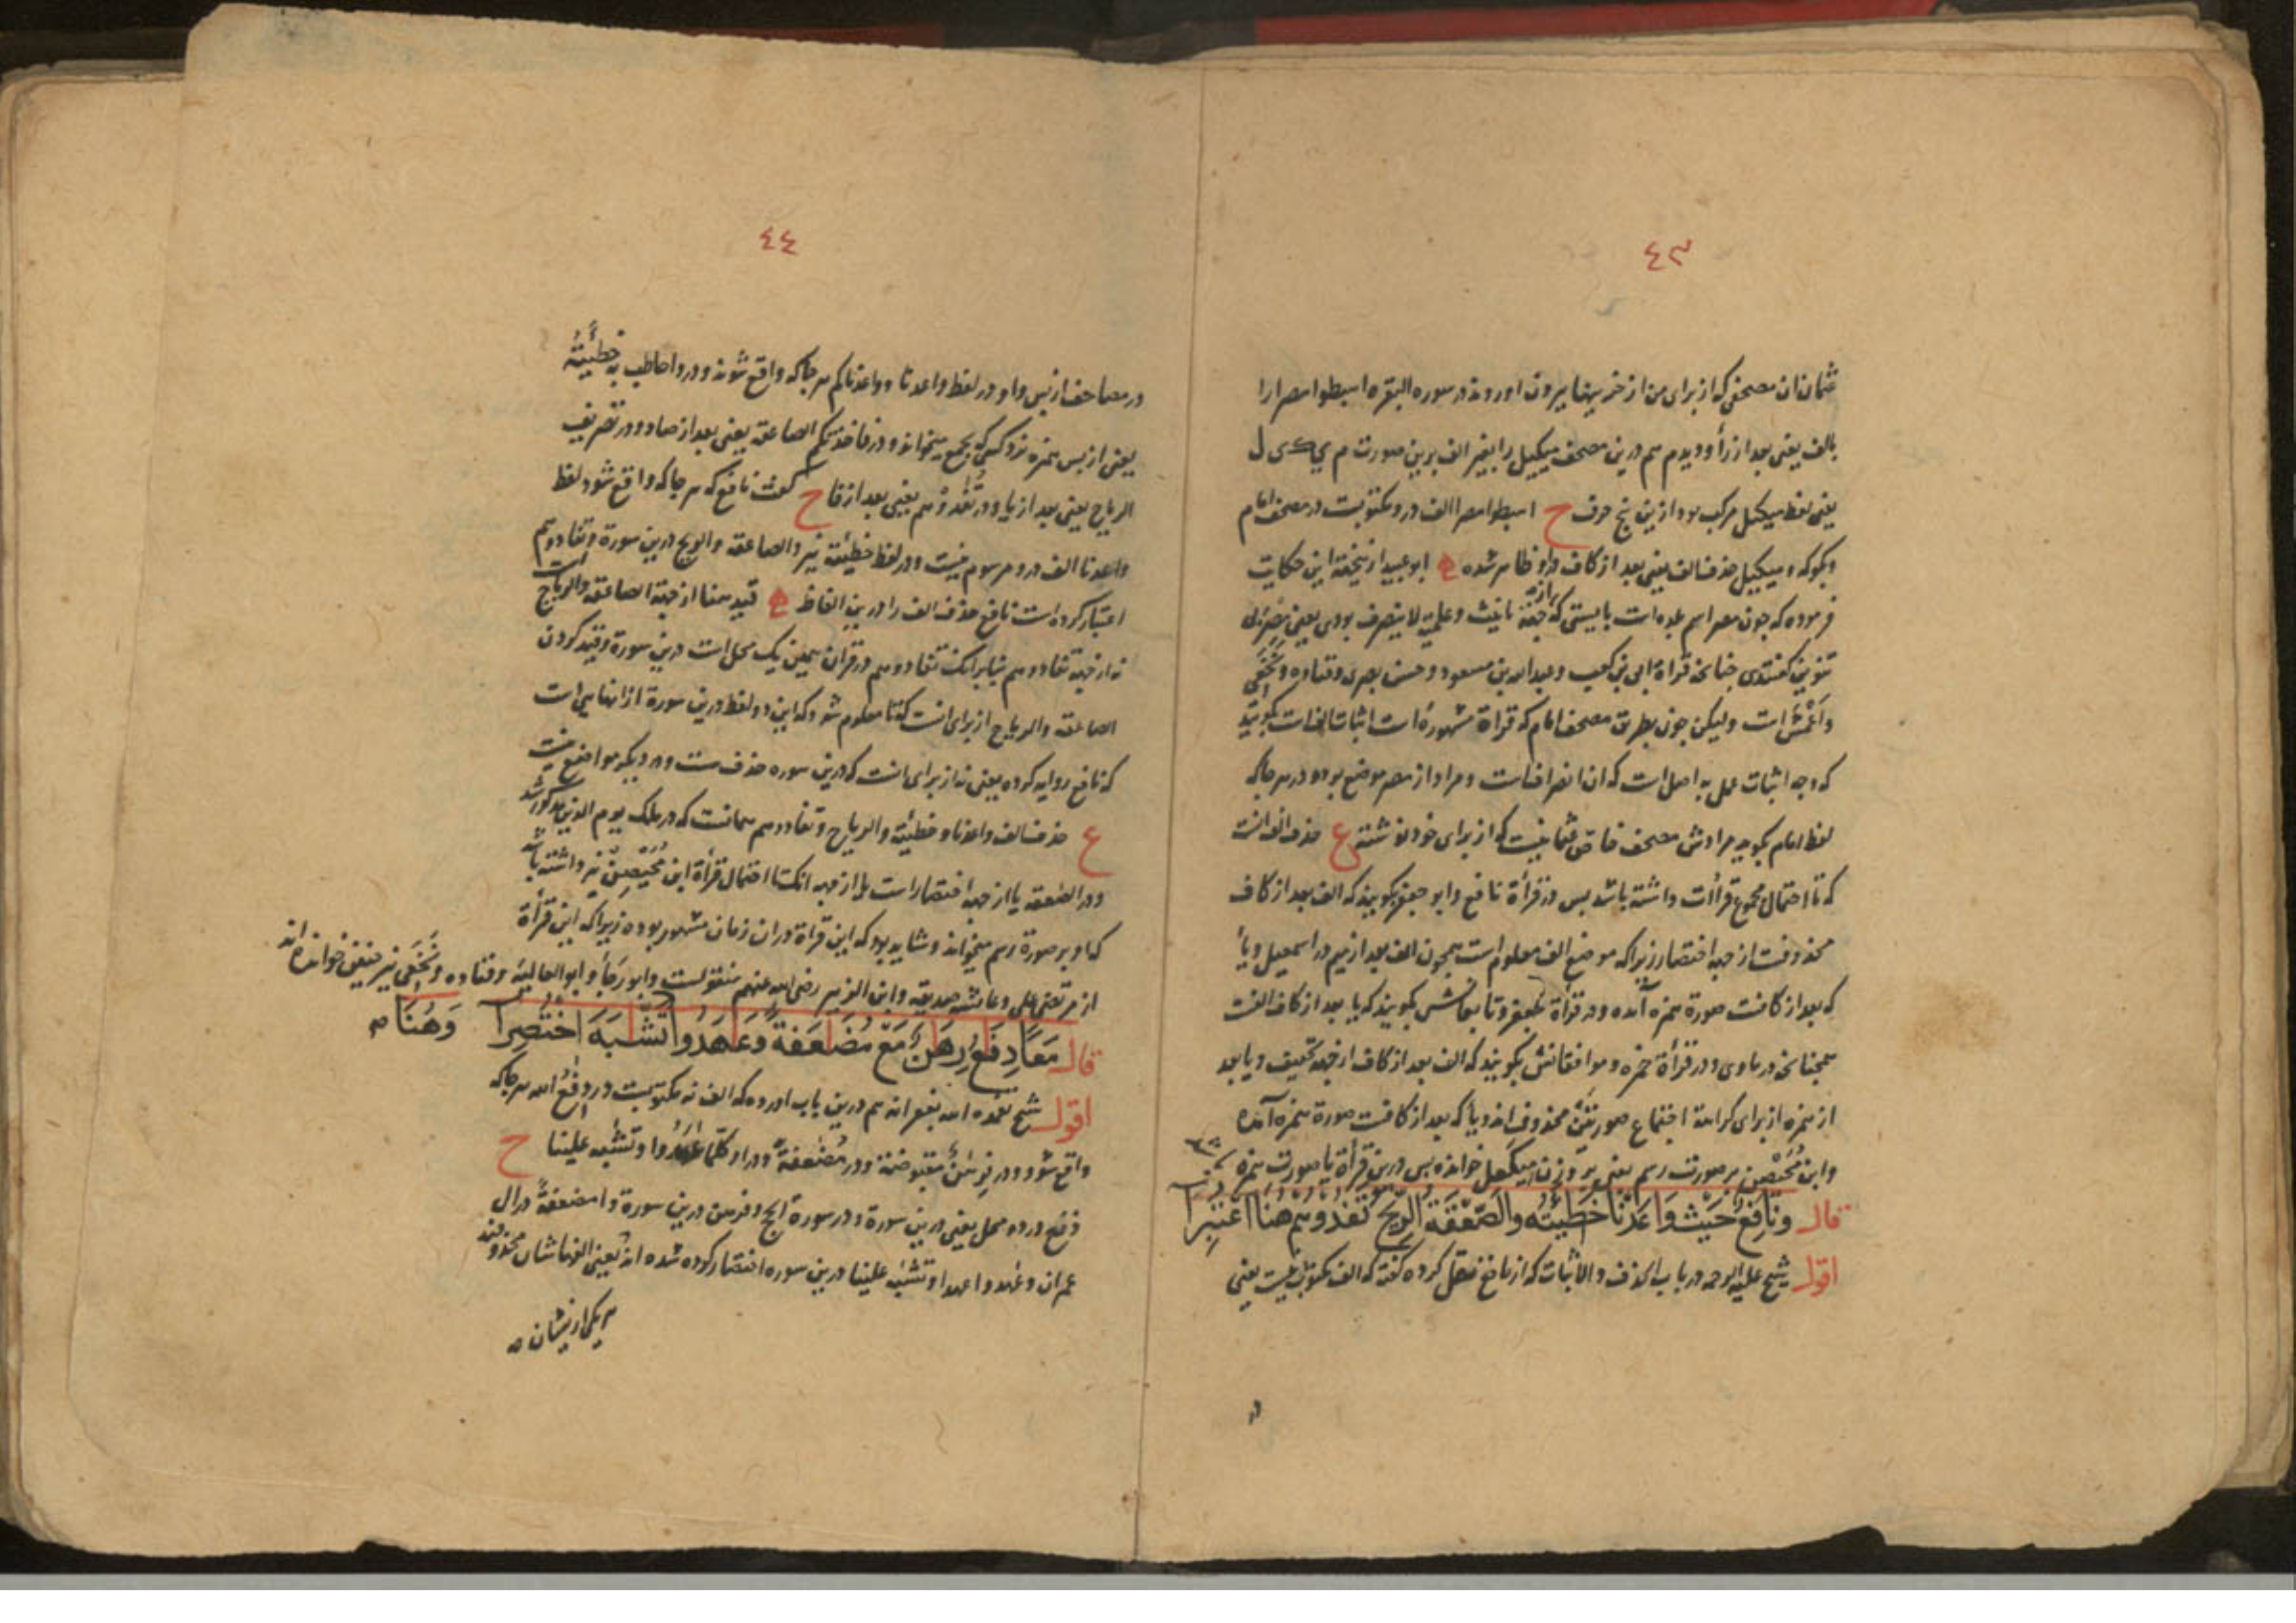 ٤٣
عثمان ان مصحفی که از برای من از خزینها بیرون اوردند در سوره البقره اهبطوا مصرا را
بالف یعنی بعد از رأ و دیدم هم درین مصحف میکیل را بغیر الف برین صورت م ی ک ی ل
یعنی لفظ میکیل مرکب بود ازین پنج حرف ح اهبطوا مصرا الف در و مکتوبست در مصحف امام
وبکو که و میکیل حذف الف یعنی بعد از کاف در و ظاهر شده ابو عبید از نتیخه این حکایت
فرموده که جون مصر اسم بلده است بایستی که از جهة تانیث و علمیة لا ینصرف بودی یعنی
تنوین کفتندی جنانحه قراة ابی بن کعب و عبد الله بن مسعود و حسن بصری و قتاده و نخعی
و اعمش است ولیکن جون بطریق مصحف امام که قراة مشهوره است اثبات الفست بکویند
که وجه اثبات عمل به اصل است که ان انصرافست و مراد از مصر موضع بود و در هر جا که
لفظ امام بکوید مرادش مصحف خاص عثمانیست که از برای خود نوشته ع حذف الف انست
که تا احتمال مجموع قراأت داشته باشد بس در قرأة نافع و ابو جعفر بکویند که الف بعد از کاف
محذوفست از جهة اختصار زیرا که موضع الف معلوم است همجون الف بعد از میم در اسمعیل و یأ
که بعد از کافست صورة همزه آمده و در قرأة جعفر و تابعانش بکویند که یا بعد از کاف الفست
همجنانحه در ماوی و در قرأة حمزه و موافقانش بکویند که الف بعد از کاف از جهة تخفیف و یا بعد
از همزه از برای کراهة اجتماع صورتین محذوف اند و یأ که بعد از کافست صورة همزه آمده
و ابن محیصن بر صورت رسم یعنی بر وزن میکعل خوانده بس درین قرأة یا صورت همزه
قال ونافع حیث واعدنا خطیئته والصعقة الریح تفدوهم هنا اعتبرا
اقول شیخ علیه الرحمه در باب الحذف والاثبات که از نافع نقل کرده کفته که الف مکتوب نیست یعنی
٤٤
در مصاحف از بس واو در لفظ واعدنا و واعدناکم هر جا که واقع شوند و در واحاطت به خطیئته
یعنی از بس همزه نزد کسی که بجمع میخواند و در فاخذتکم الصاعقة یعنی بعد از صاد و در تصریف
الریاح یعنی بعد از یا و در تفدوهم یعنی بعد از فا ح کفت نافع که هر جا که واقع شود لفظ
واعدنا الف در و مرسوم نیست و در لفظ خطیئته نیز و الصاعقة و الریح درین سورة و تفادوهم
اعتبار کرده است نافع حذف الف را درین الفاظ قید هنا از جهة الصاعقة والریاح است
نه از جهة تفادوهم بنابر انک تفادوهم در قران همین یک محل است درین سورة و قید کردن
الصاعقة والریاح از برای انست که تا معلوم شود که این دو لفظ درین سورة از انهایی است
که نافع روایه کرده یعنی نه از برای انست که درین سوره حذفست و در دیکر مواضع نیست
ع حذف الف واعدنا و خطیئته والریاح و تفادوهم همانست که در ملک یوم الدین مذکور شد
و در الصعقة یا از جهة اختصار است یا از جهة انک تا احتمال قرأة ابن محیصن نیز داشته باشد
که او بر صورة رسم میخواند و شاید بود که این قراة دران زمان مشهور بوده زیرا که این قرأة
از مرتضی علی و عائشه صدیقه و ابن الزبیر رضی الله عنهم منقولست و ابو رجا و ابو العالیه و قتاده و نخعی نیز خوانده اند
قال معا دفع رهن مع مضعفة وعهدوا تشبه اختصرا وهنا
اقول شیخ تغمده الله بغفرانه هم درین باب اورده که الف نه مکتوبست در دفع الله هر جا که
واقع شود و در فرهن مقبوضة و در مضعفة و در او کلما عهدوا و تشبه علینا ح
دفع در دو محل یعنی درین سورة و در سورة الحج و فرهن درین سورة و اضعفا مضعفة در ال
عمران و عهدوا عهدا و تشبه علینا درین سوره اختصار کرده شده اند یعنی الفهاشان محذوفند
هر یکی از ایشان